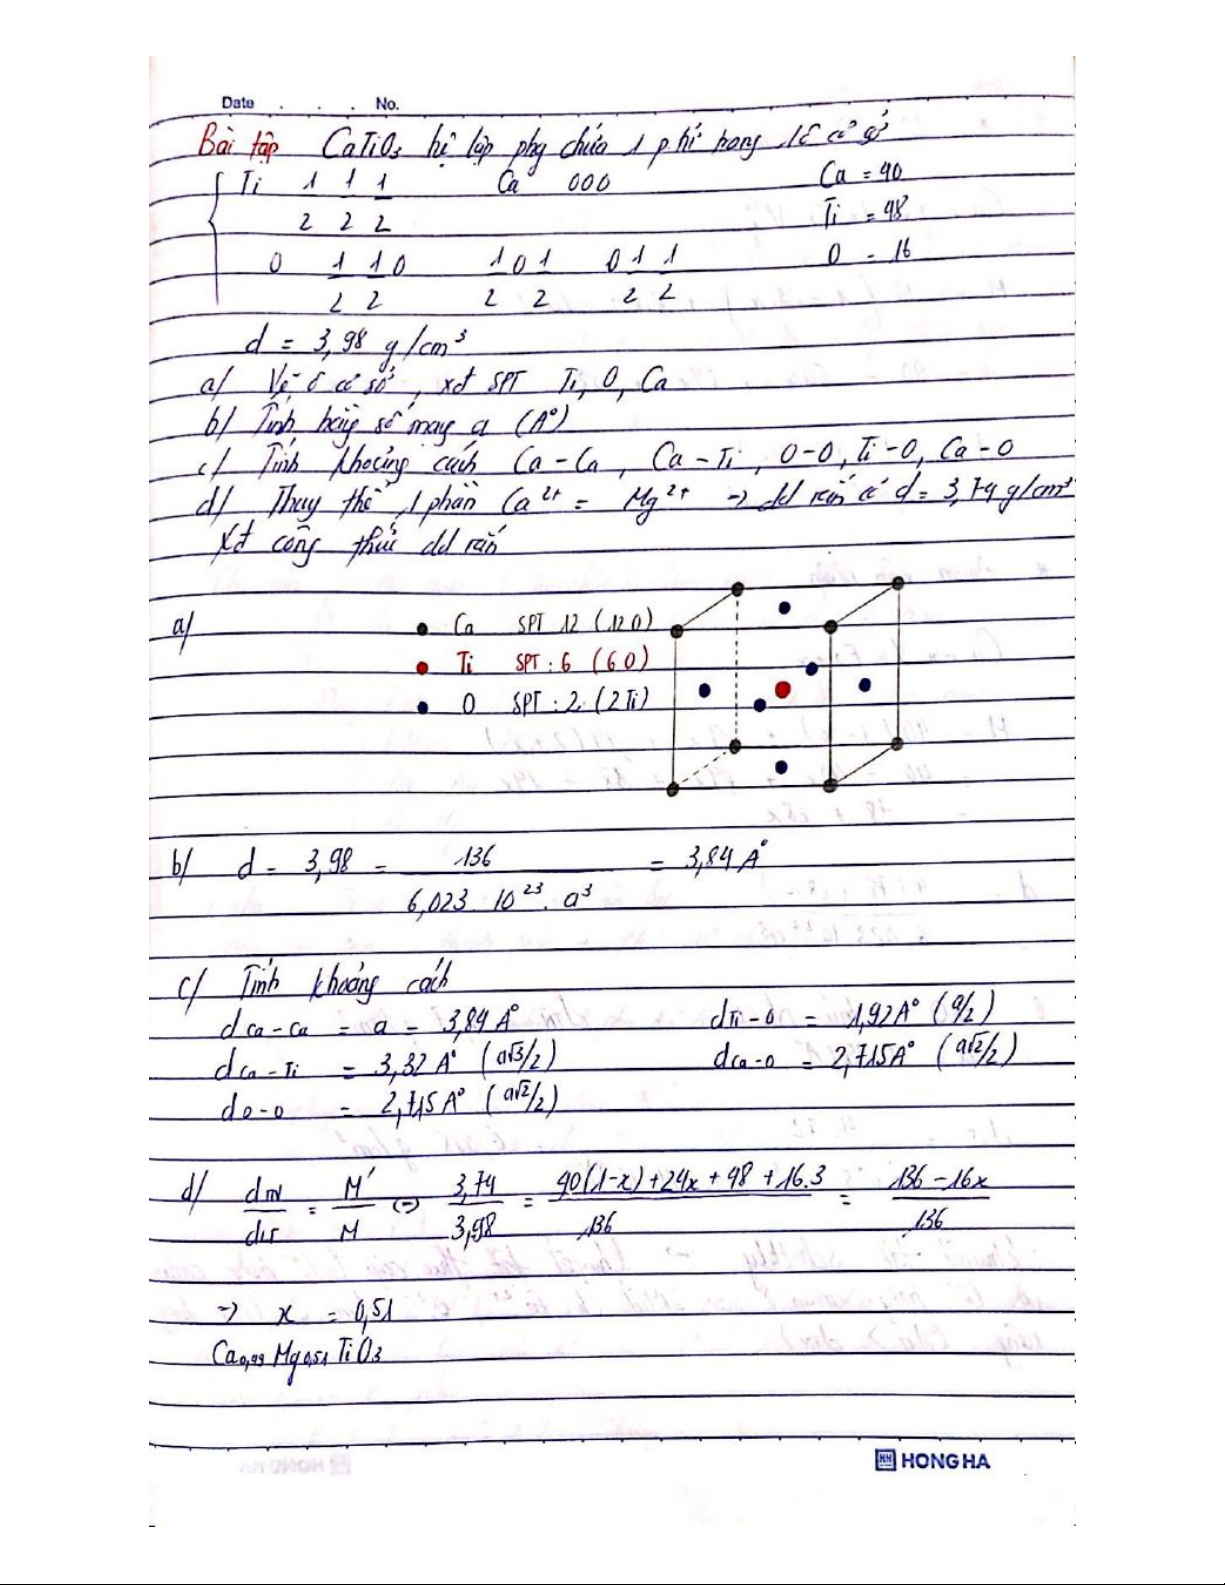 Date . . . No.
Bài tập CaTiO3 hệ lập phg chứa 1 phtử trong 1 ô cơ sở
Ti 1/2 1/2 1/2 Ca 000 Ca = 40
Ti = 48
O 1/2 1/2 0 1/2 0 1/2 0 1/2 1/2 O = 16
d = 3,98 g/cm³
a/ Vẽ ô cơ sở, xđ SPT Ti, O, Ca
b/ Tính hằng số mạng a (A°)
c/ Tính khoảng cách Ca – Ca, Ca – Ti, O-O, Ti-O, Ca-O
d/ Thay thế 1 phần Ca²⁺ = Mg²⁺ → dd rắn có d = 3,74 g/cm³
Xđ công thức dd rắn
a/
● Ca SPT 12 (12 O)
● Ti SPT : 6 (6 O)
● O SPT : 2 (2Ti)
b/ d = 3,98 = 136 / 6,023. 10²³. a³ = 3,84 A°
c/ Tính khoảng cách
d Ca-Ca = a = 3,84 A° d Ti-O = 1,92 A° (a/2)
d Ca-Ti = 3,32 A° (a√3/2) d Ca-O = 2,715A° (a√2/2)
d O-O = 2,715 A° (a√2/2)
d/ = M'/M (=) 3,74/3,98 = 40(1-x) + 24x + 48 + 16.3 / 136 = 136 – 16x / 136
→ x = 0,51
Ca0,49 Mg0,51 TiO3
HONG HA